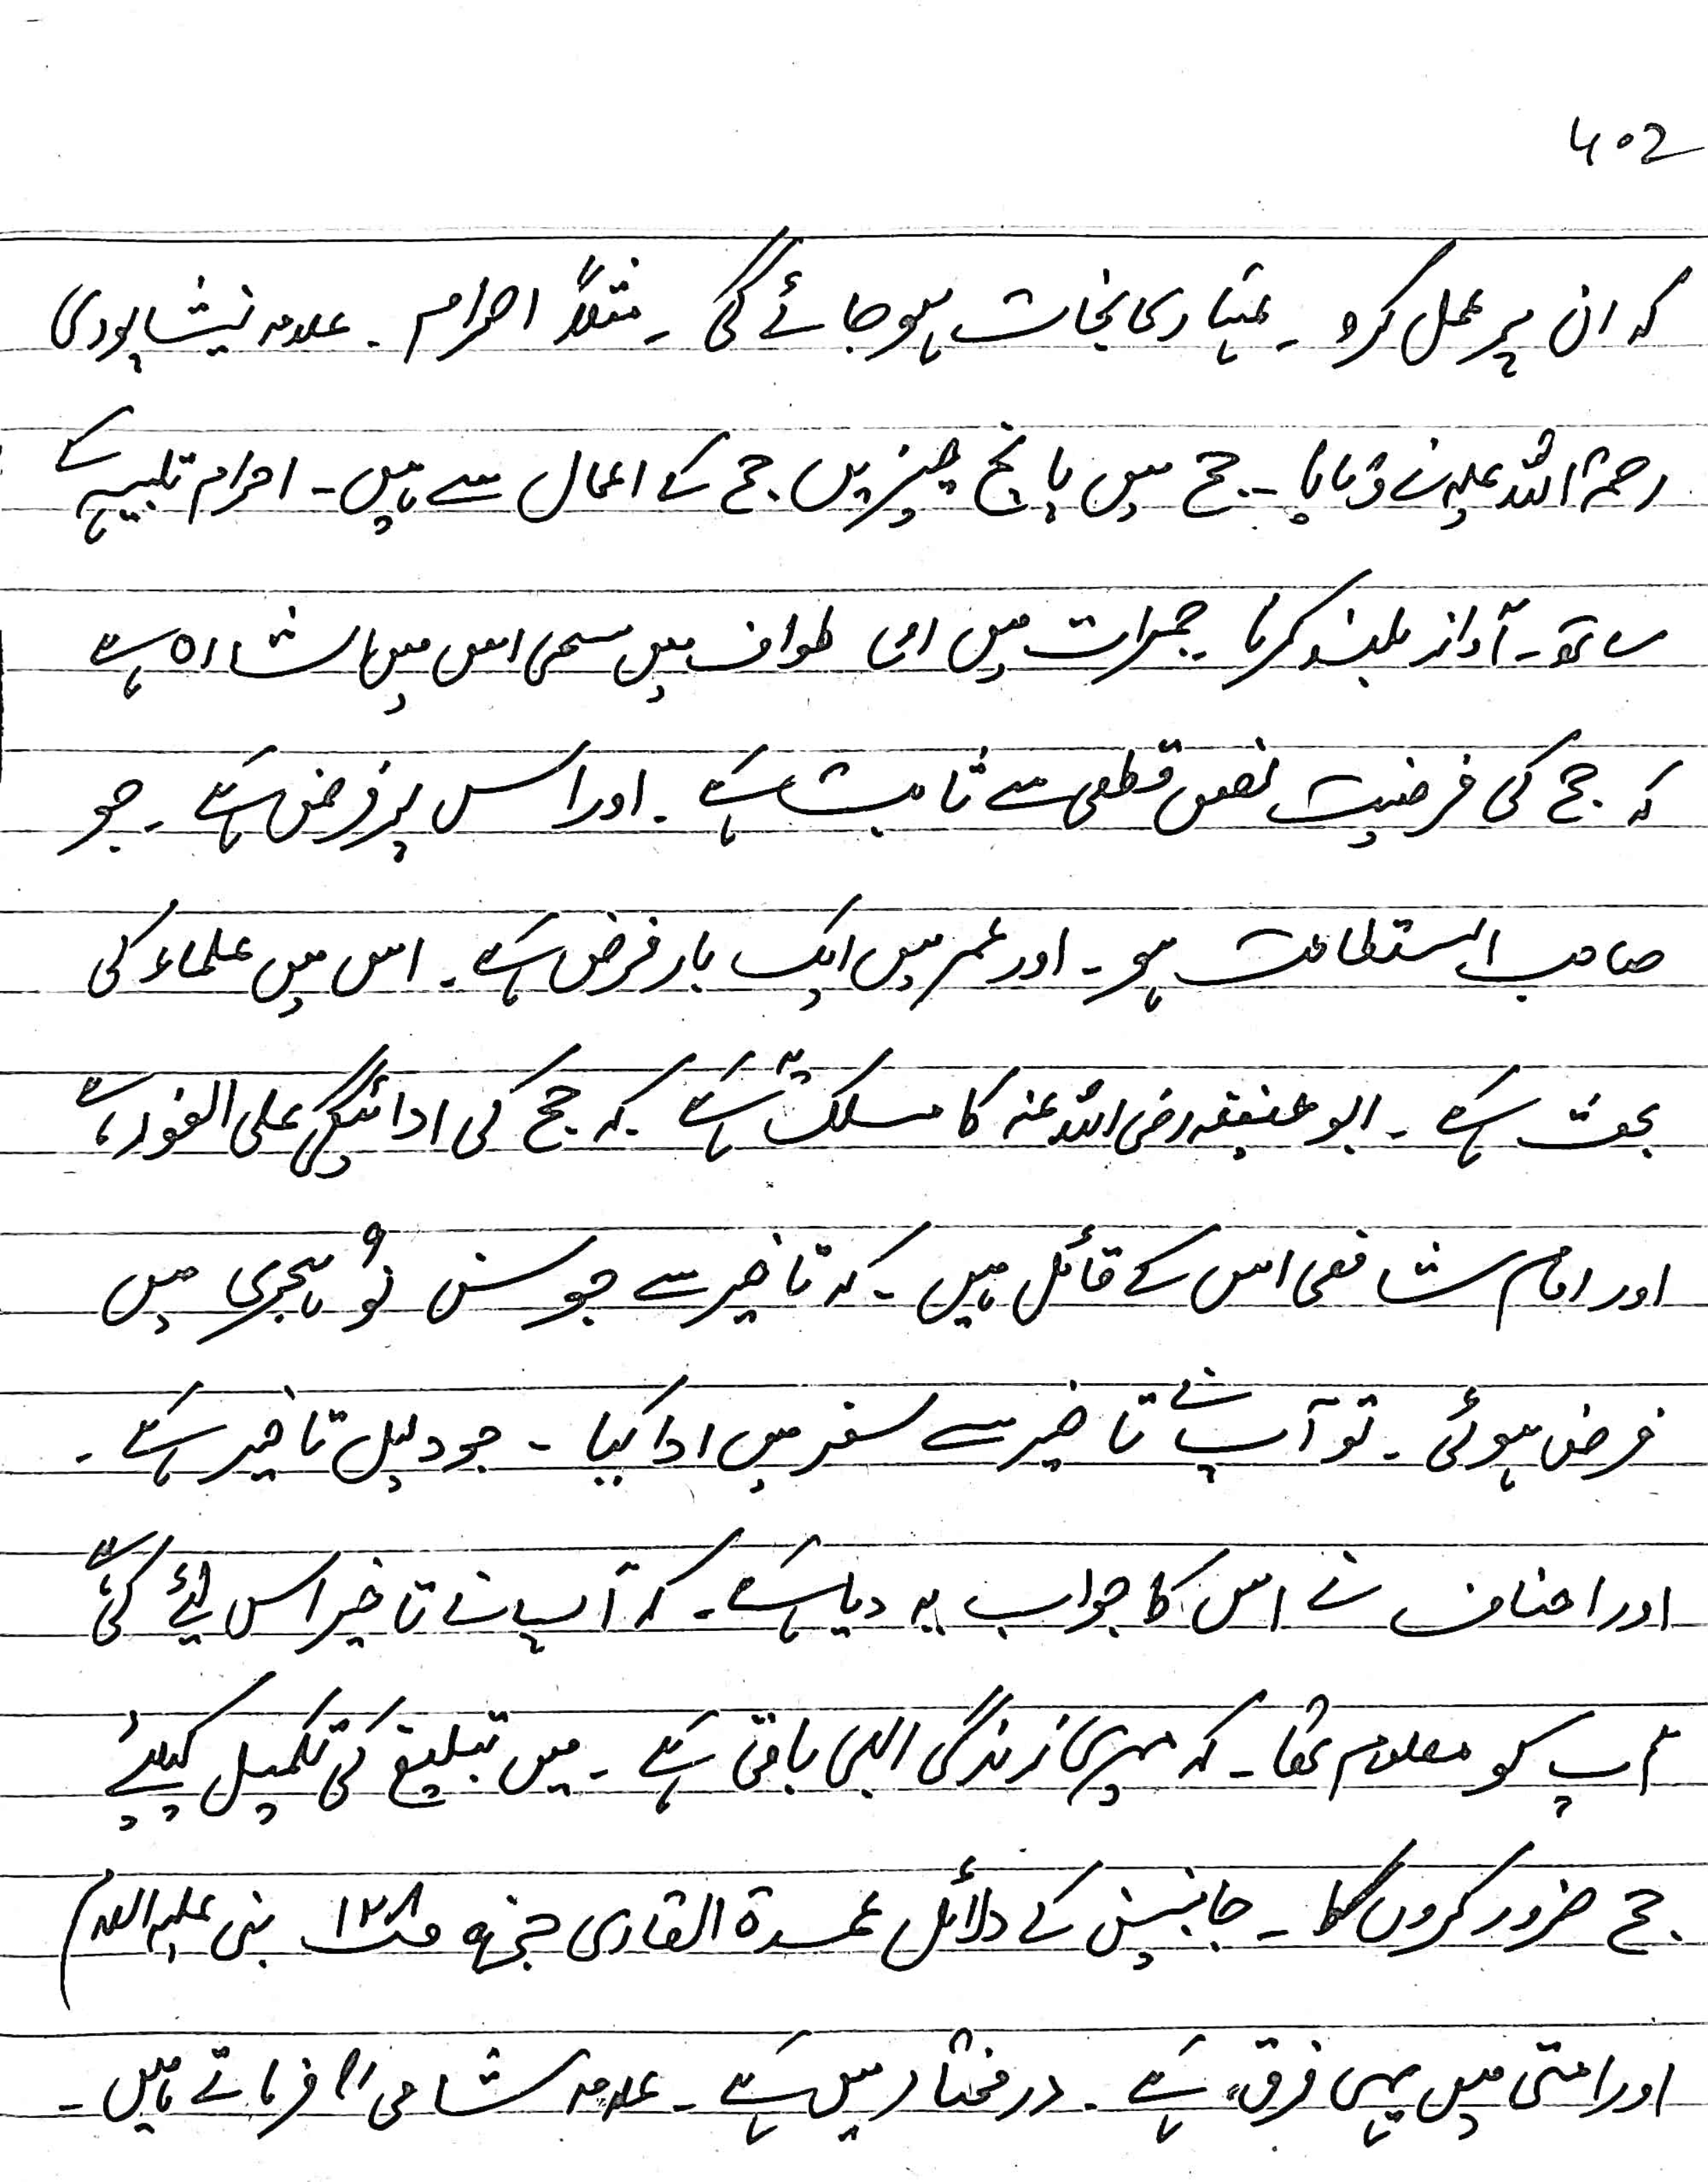 402
کہ ان پر عمل کرو ۔ تمہاری نجات ہو جائے گی ۔ مثلاً احرام ۔ علامہ نیشاپوری
رحمۃ اللہ علیہ نے فرمایا ۔ حج میں پانچ چیزیں حج کے اعمال سے ہیں ۔ احرام تلبیہ کے
ساتھ ۔ آواز بلند کرنا ۔ جمرات میں رمی طواف میں سعی اس میں اشارہ ہے
کہ حج کی فرضیت نص قطعی سے ثابت ہے ۔ اور اس پر فرض ہے ۔ جو
صاحب استطاعت ہو ۔ اور عمر میں ایک بار فرض ہے ۔ اس میں علماء کی
بحث ہے ۔ ابو حنیفہ رضی اللہ عنہ کا مسلک یہ ہے ۔ کہ حج کی ادائیگی علی الفور ہے
اور امام شافعی اس کے قائل ہیں ۔ کہ تاخیر سے جو سن نو ۹ ہجری میں
فرض ہوئی ۔ تو آپ نے تاخیر سے سفر میں ادا کیا ۔ جو دلیل تاخیر ہے ۔
اور احناف نے اس کا جواب یہ دیا ہے ۔ کہ آپ نے تاخیر اس لئے کی ہے
آپ کو معلوم تھا ۔ کہ میری زندگی ابھی باقی ہے ۔ میں تبلیغ کی تکمیل کیلئے
حج ضرور کروں گا ۔ جانبین کے دلائل عمدۃ القاری جز ۹ صـ ۱۲۸ نبی علیہ السلام
اور امتی میں یہی فرق ہے ۔ در مختار میں ہے ۔ علامہ شامی فرماتے ہیں ۔